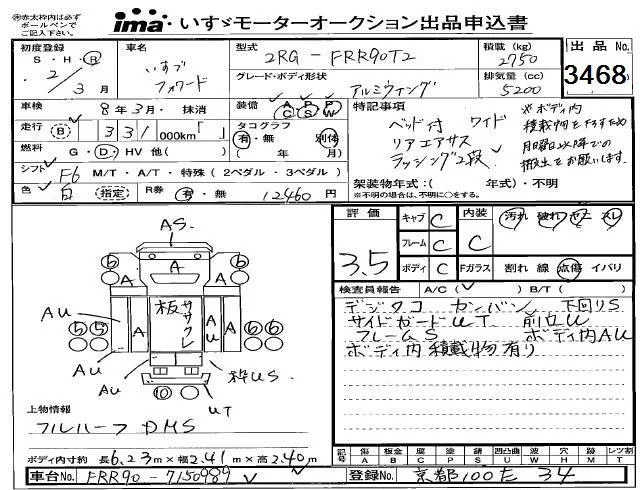 ㊟赤太枠内は必ず
ボールペンで
ご記入下さい。
ima いすゞモーターオークション出品申込書
初度登録
S・H・Ⓡ
2/3月
車名
いすゞ
フォワード
型式
2RG-FRR90T2
グレード・ボディ形状
アルミウィング
積載(kg)
2750
排気量(cc)
5200
出品No.
3468
車検
8年3月・抹消
走行
(B) 331 000km「 」
燃料
G・Ⓓ・HV 他( )
シフト
F6 M/T・A/T・特殊(2ペダル・3ペダル)
色
白 (指定)
R券
㊒・無 12460円
装備
A C P S P W
タコグラフ
㊒・無 別体
( 年 月)
特記事項
ベッド付 ワイド
リアエアサス
ラッシング2段
※ボディ内
積載物をおろすため
月曜日以降での
搬出をお願いします。
架装物年式:( 年式)・不明
※不明の場合は、不明に○をする。
評価
3.5
キャブ C
フレーム C
ボディ C
内装
C
Fガラス
汚れ 破れ コゲ スレ
割れ 線 点傷 イバリ
検査員報告
A/C(✓) B/T( )
デジタコ カンバン 下回りS
サイドガードUT 前立U
フレームS ボディ内AU
ボディ内積載物有り
AS
A
A
A
⑥
⑥
AU
板ササクレ
A
A
U
A
⑤⑤
⑥⑥
AU
AU
枠US
⑩
UT
上物情報
フルハーフ DMS
ボディ内寸約 長6.23m×幅2.41m×高2.40m
車台No. FRR90-7150989
記号
傷 板金 腐 塗 錆 凹凸曲 波 穴 跡 レツ割
A B C P S U W H M T
登録No. 京都100え 34